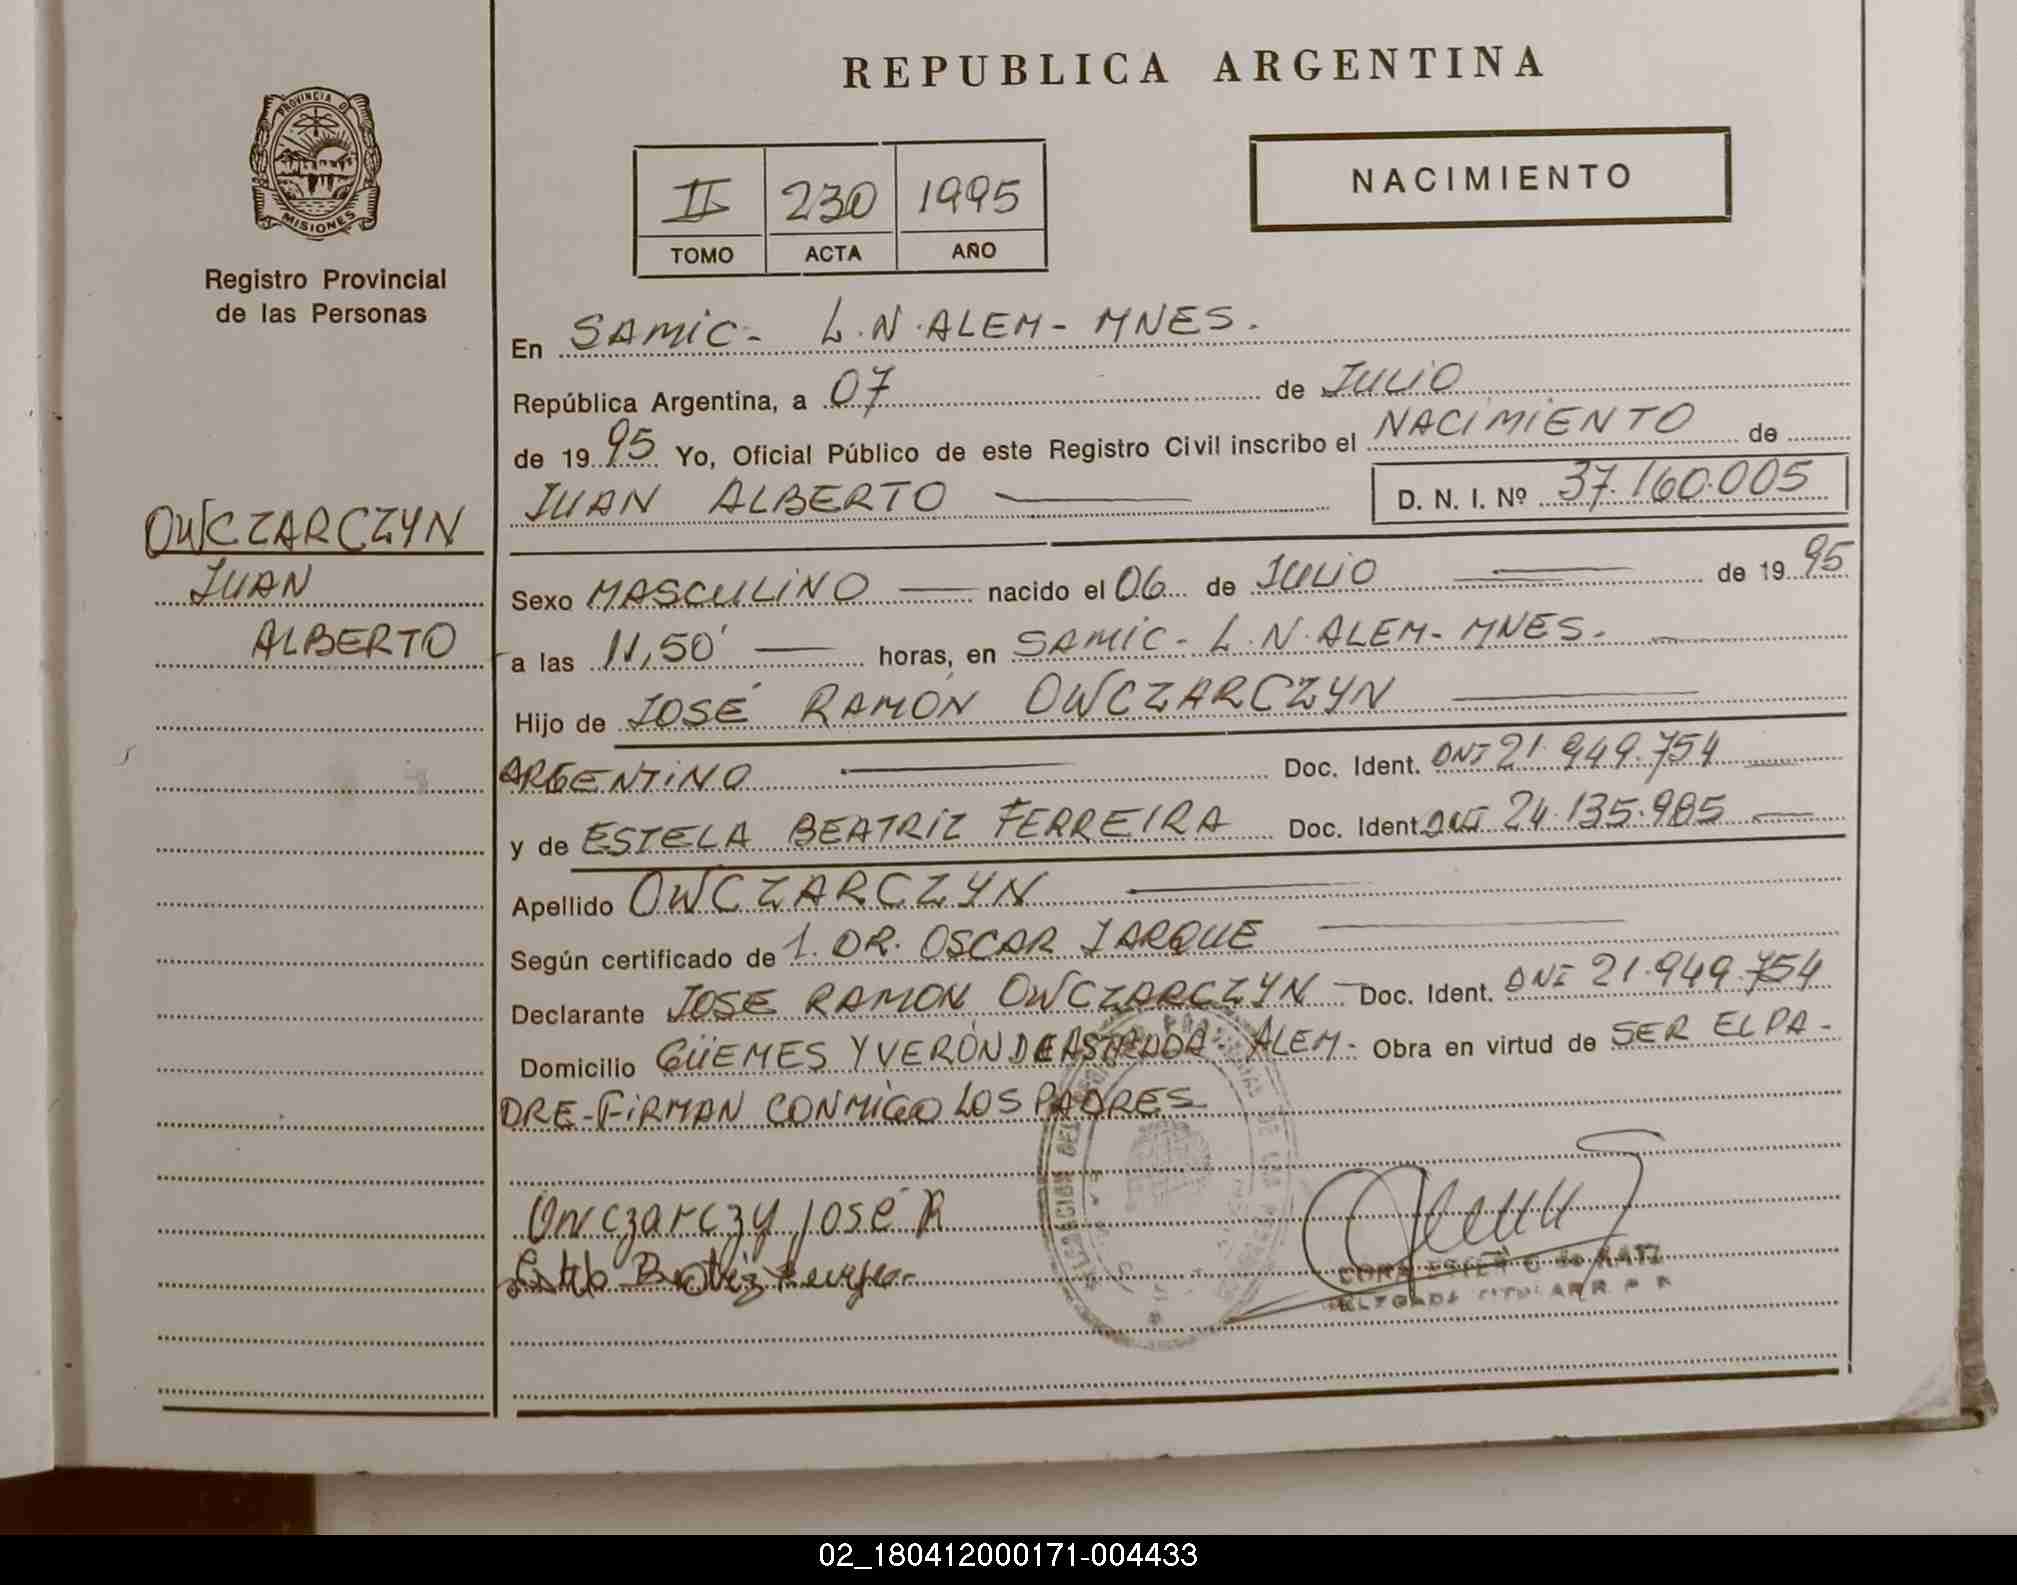 REPUBLICA ARGENTINA
PROVINCIA D
MISIONES
Registro Provincial
de las Personas
II 230 1995
TOMO ACTA AÑO
NACIMIENTO
En SAMIC - L.N. ALEM - MNES.
República Argentina, a 07 de JULIO
de 1995 Yo, Oficial Público de este Registro Civil inscribo el NACIMIENTO de
JUAN ALBERTO D. N. I. Nº 37.160.005
OWCZARCZYN
JUAN
ALBERTO
Sexo MASCULINO nacido el 06 de JULIO de 1995
a las 11,50' horas, en SAMIC - L.N. ALEM - MNES.
Hijo de JOSÉ RAMÓN OWCZARCZYN
ARGENTINO Doc. Ident. DNI 21.949.754
y de ESTELA BEATRIZ FERREIRA Doc. Ident. DNI 24.135.985
Apellido OWCZARCZYN
Según certificado de 1. DR. OSCAR JARQUE
Declarante JOSE RAMON OWCZARCZYN Doc. Ident. DNI 21.949.754
Domicilio GÜEMES Y VERÓN DE ASTRADA - ALEM - Obra en virtud de SER EL PA-
DRE - FIRMAN CONMIGO LOS PADRES
Owczarczy José R
Beatriz
02_180412000171-004433